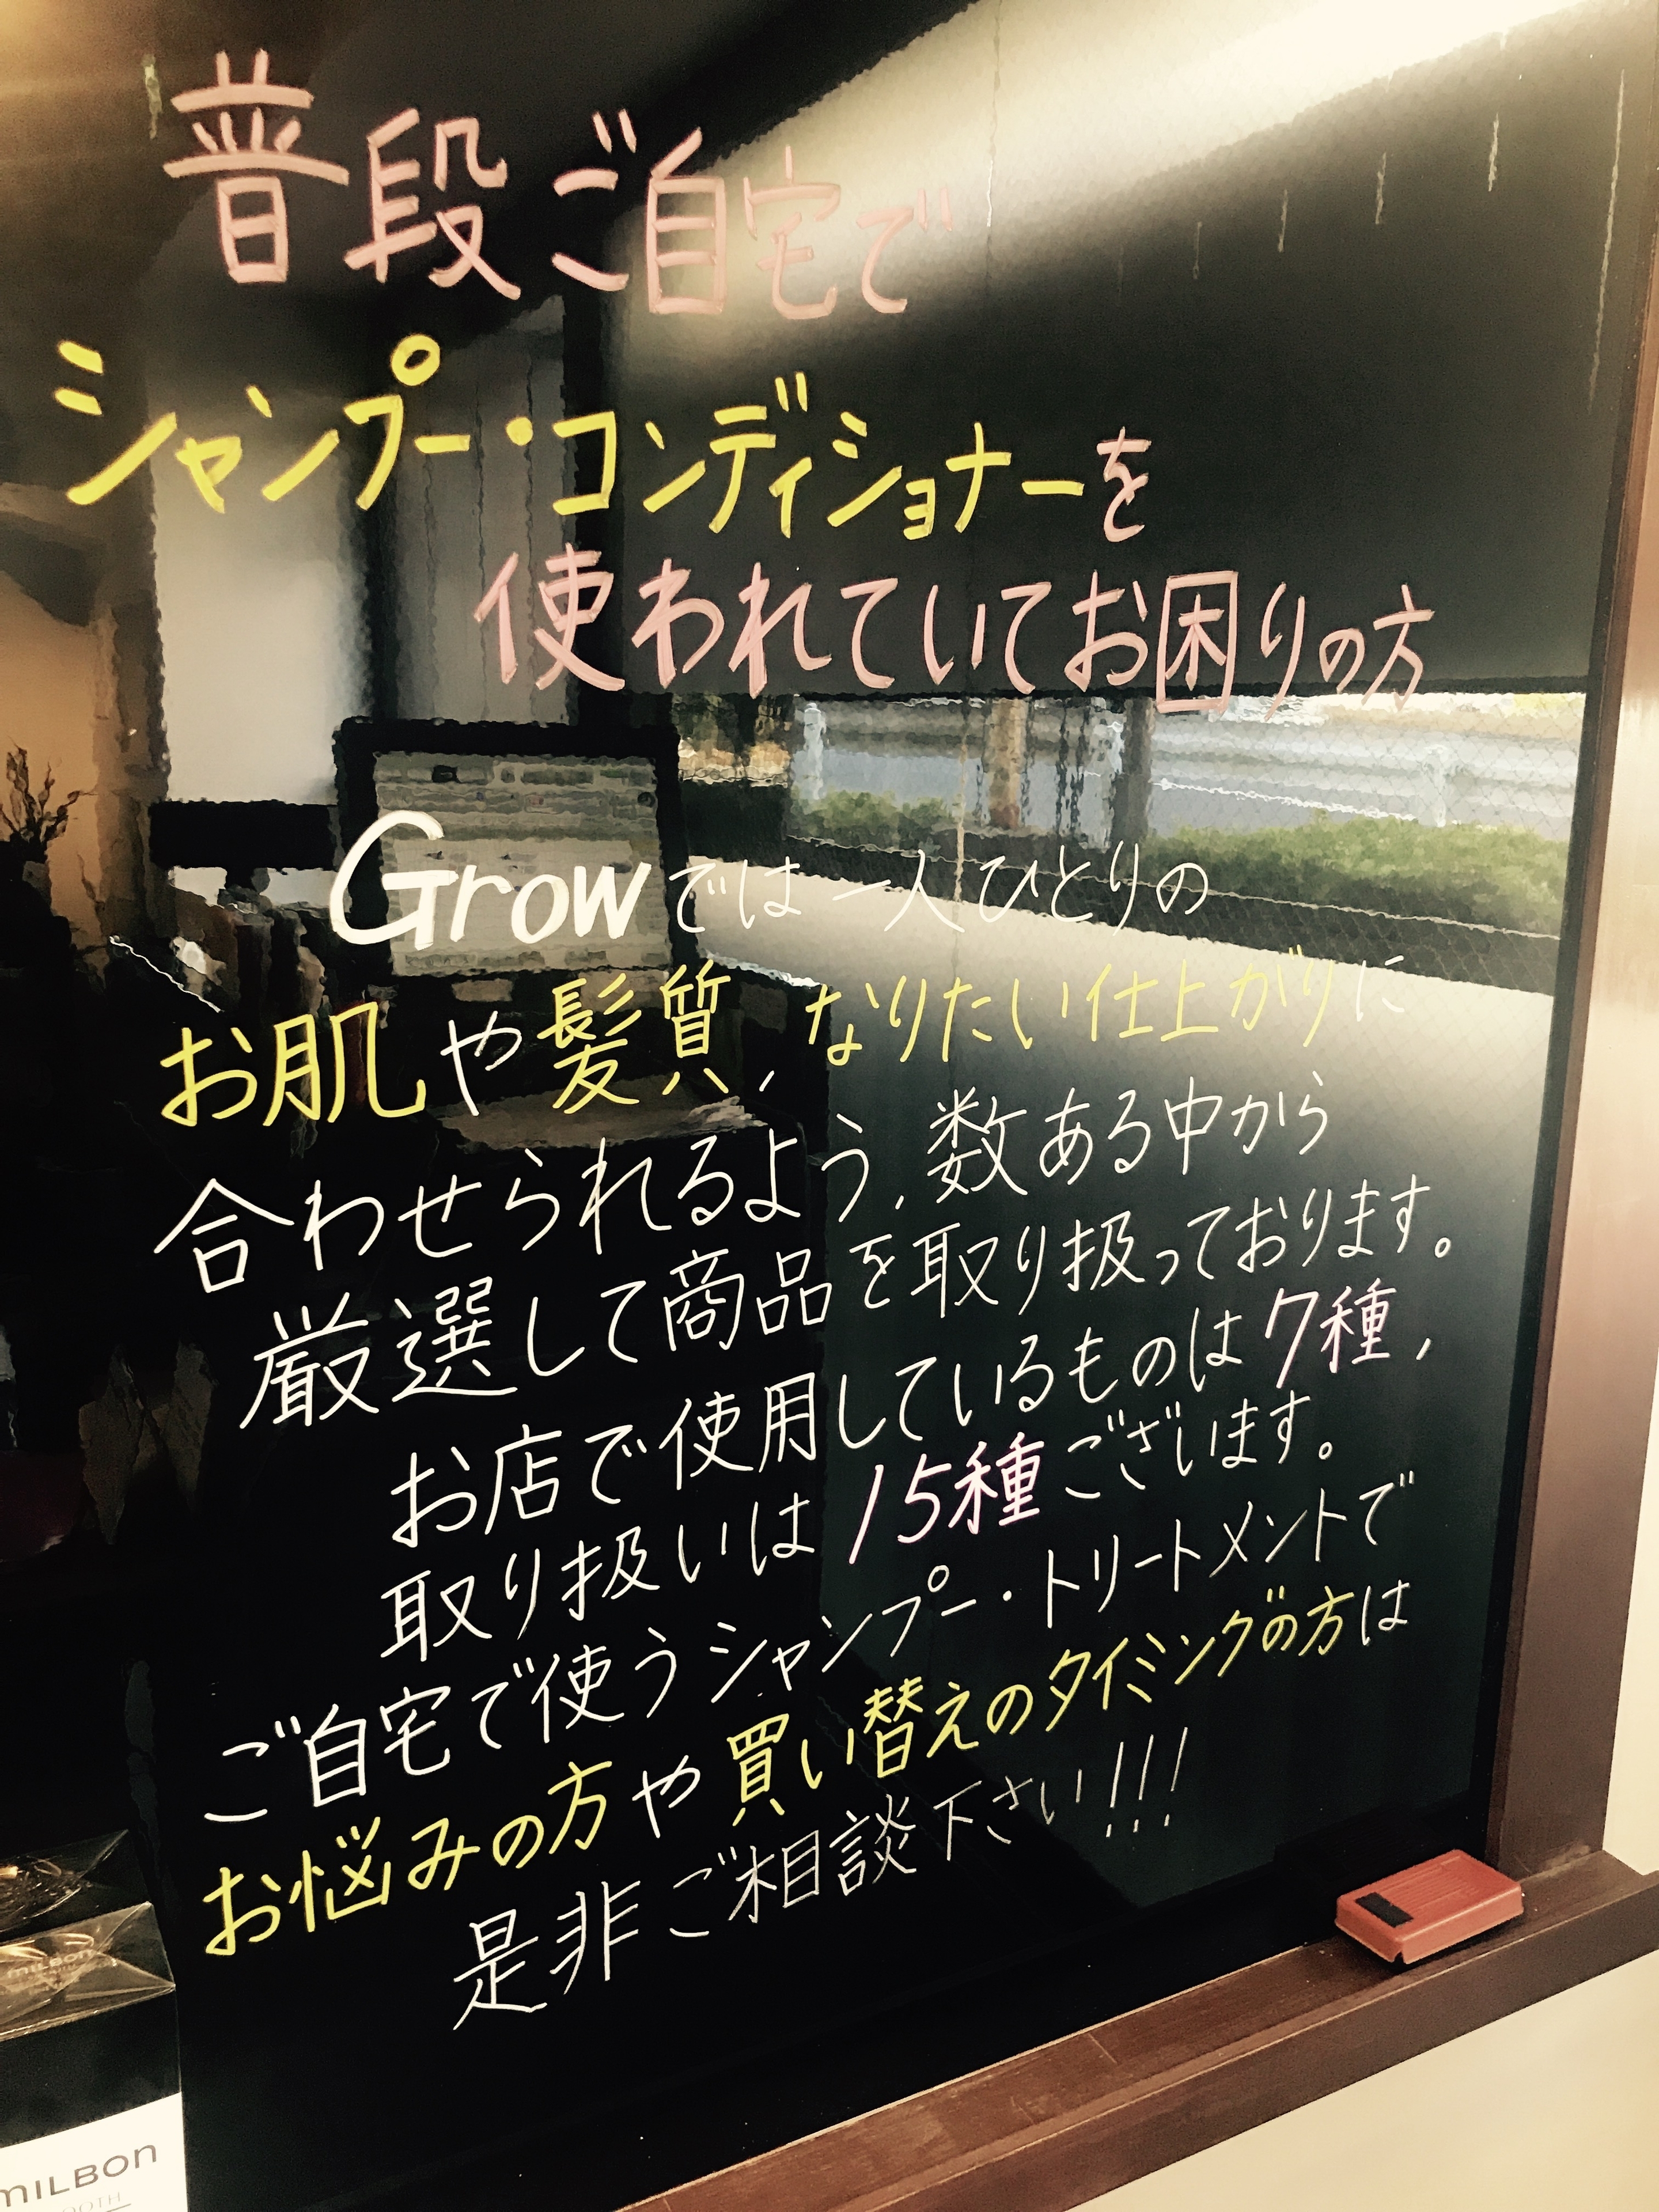 普段ご自宅で
シャンプー・コンディショナーを
使われていてお困りの方
Growでは一人ひとりの
お肌や髪質,なりたい仕上がりに
合わせられるよう,数ある中から
厳選して商品を取り扱っております。
お店で使用しているものは7種,
取り扱いは15種ございます。
ご自宅で使うシャンプー・トリートメントで
お悩みの方や買い替えのタイミングの方は
是非ご相談下さい!!!
MILBON
MILBON